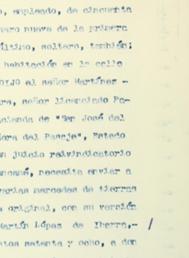 o, empleado, de cincuenta
ero nueve de la primera
ltimo, soltero, también;
habitación en la calle
DIJO al señor Martínez -
ra, señor licenciado Fe-
cienda de "San José del
ora del Pasaje", Estado
n juicio reivindicatorio
, necesita enviar a
verias mercedes de tierras
a original, con su versión
artín López de Ibarra,-
ntos setenta y ocho, a don